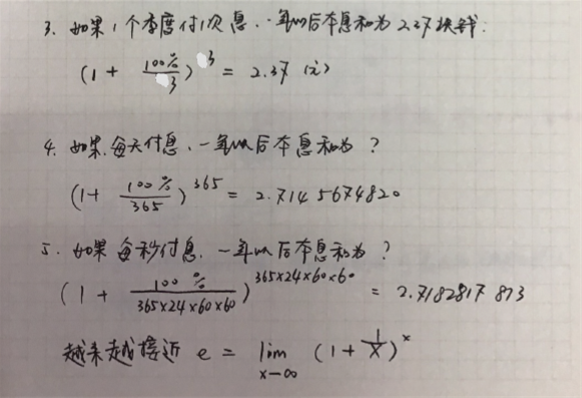 3. 如果1个季度付1次息,一年以后本息和为2.37块钱:
(1 + 100%/3)^3 = 2.37 (元)
4. 如果,每天付息,一年以后本息和为?
(1+ 100%/365)^365 = 2.7145674820
5. 如果每秒付息,一年以后本息和为?
(1 + 100%/(365×24×60×60))^(365×24×60×60) = 2.7182817813
越来越接近 e = lim x→∞ (1 + 1/x)^x